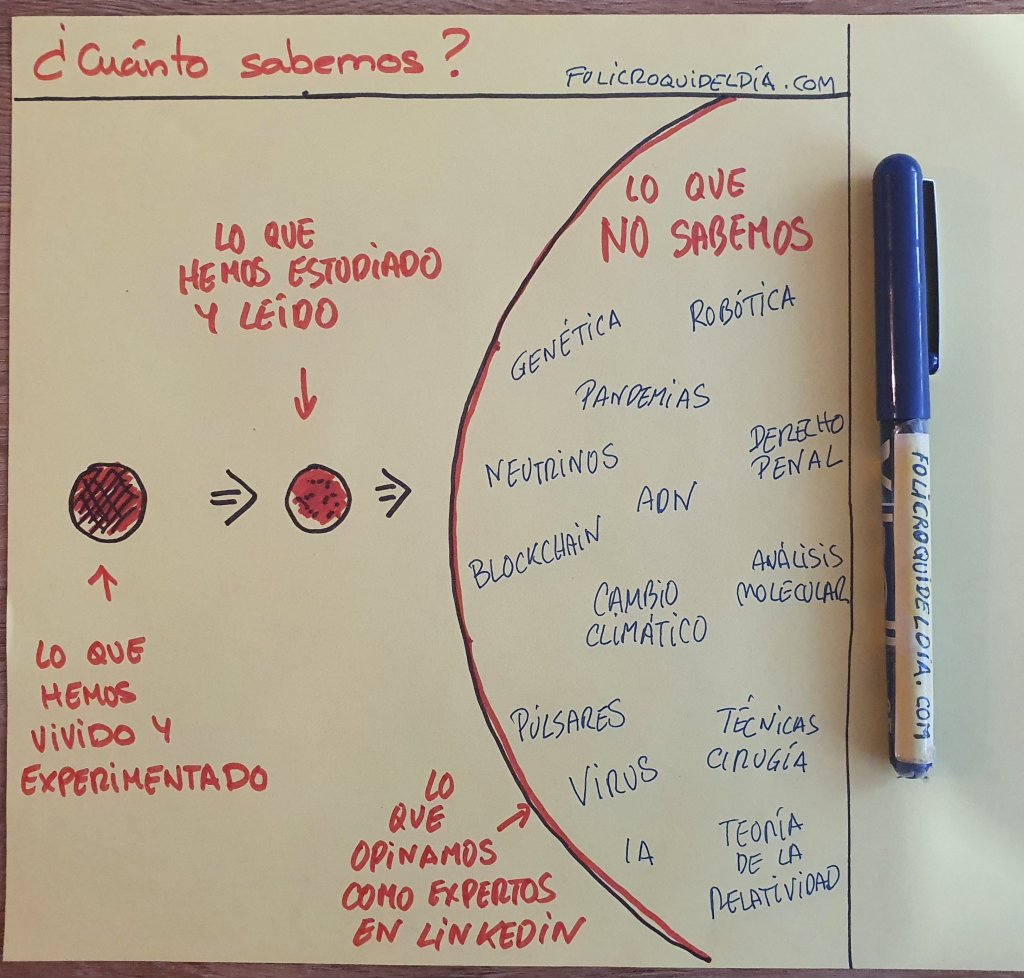 ¿Cuánto sabemos?
FOLICROQUIDELDÍA.COM
LO QUE
NO SABEMOS
LO QUE
HEMOS ESTUDIADO
Y LEÍDO
GENÉTICA
ROBÓTICA
PANDEMIAS
NEUTRINOS
DERECHO
PENAL
ADN
BLOCKCHAIN
ANÁLISIS
MOLECULAR
CAMBIO
CLIMÁTICO
LO QUE
HEMOS
VIVIDO Y
EXPERIMENTADO
PÚLSARES
TÉCNICAS
CIRUGÍA
VIRUS
IA
TEORÍA
DE LA
RELATIVIDAD
LO
QUE
OPINAMOS
COMO EXPERTOS
EN LINKEDIN
FOLICROQUIDELDÍA.COM